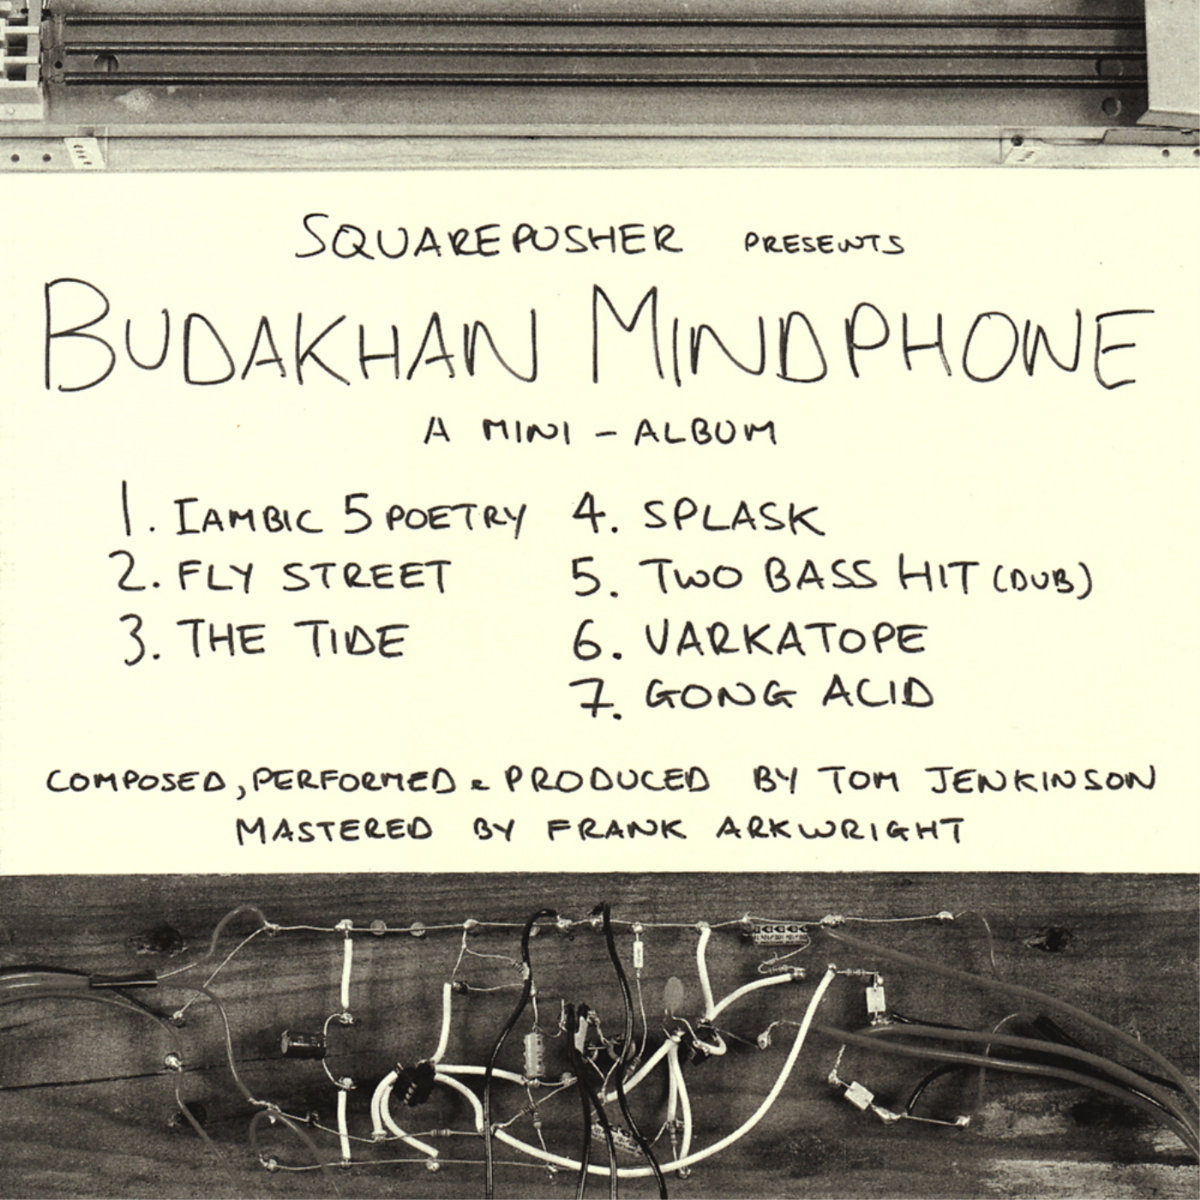 SQUAREPUSHER PRESENTS
BUDAKHAN MINDPHONE
A MINI - ALBUM
1. IAMBIC 5 POETRY
2. FLY STREET
3. THE TIDE
4. SPLASK
5. TWO BASS HIT (DUB)
6. VARKATOPE
7. GONG ACID
COMPOSED, PERFORMED & PRODUCED BY TOM JENKINSON
MASTERED BY FRANK ARKWRIGHT